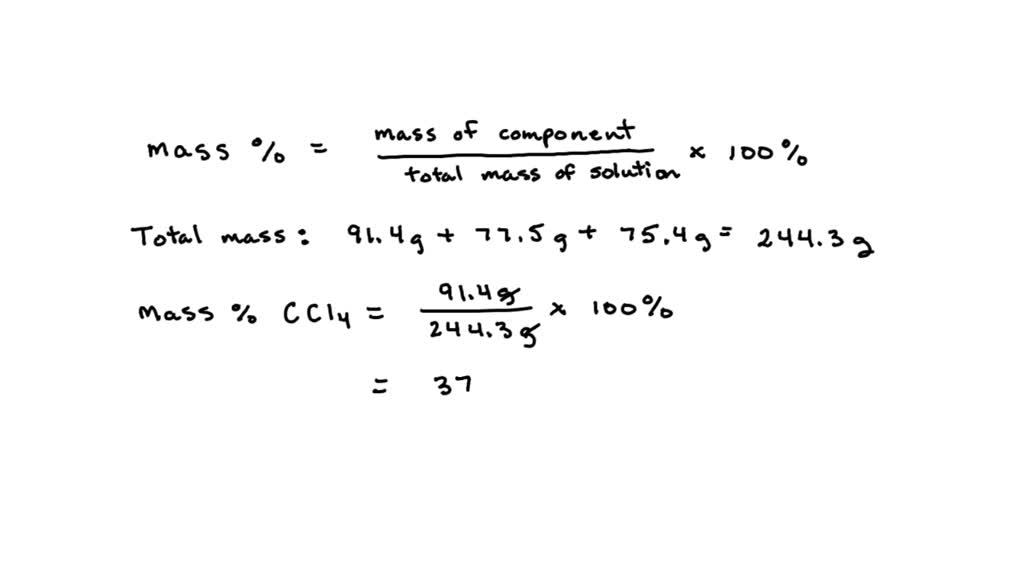 mass % = mass of component / total mass of solution x 100%
Total mass: 91.4g + 77.5g + 75.4g = 244.3g
Mass % CCl4 = 91.4g / 244.3g x 100%
= 37